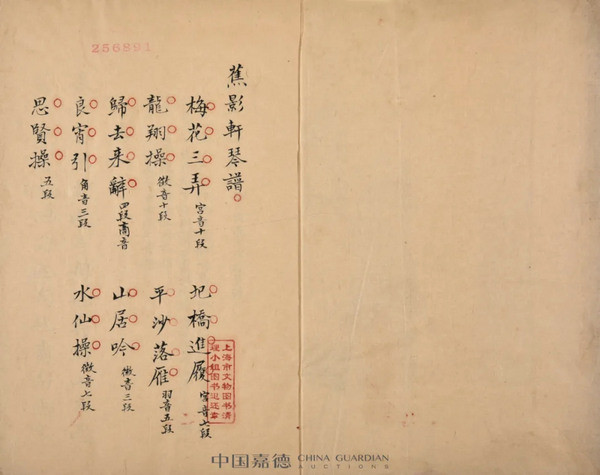 256891
蕉影軒琴譜
梅花三弄 宮音十段
圯橋進履 宮音七段
龍翔操 徵音十段
平沙落雁 羽音五段
歸去来辭 四段商音
山居吟 徵音三段
良宵引 角音三段
水仙操 徵音七段
思賢操 五段
上海市文物图书清
理小组图书退还章
中国嘉德 CHINA GUARDIAN
AUCTIONS